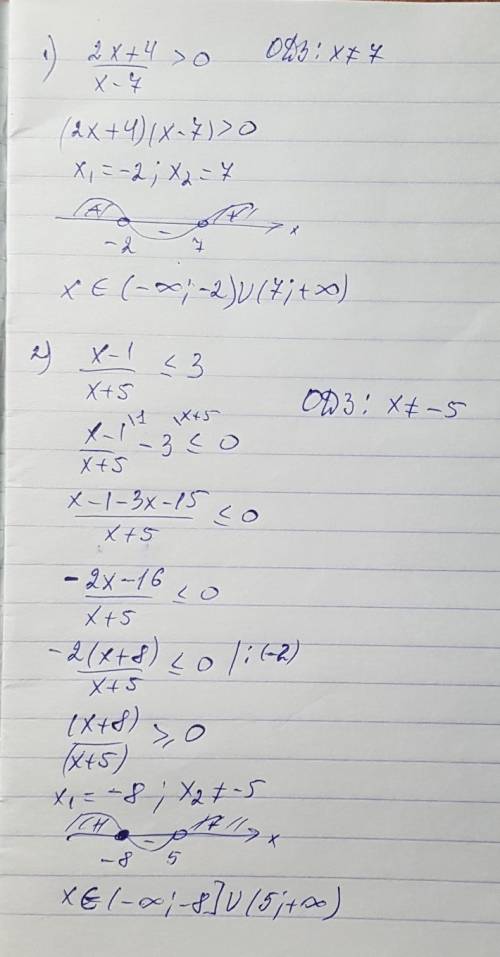 1) (2x+4)/(x-7) > 0   ОДЗ: x≠7
(2x+4)(x-7)>0
x₁=-2; x₂=7
+ - + x
-2 7
x∈(-∞;-2)∪(7;+∞)
2) (x-1)/(x+5) ≤ 3
ОДЗ: x≠-5
(x-1)/(x+5) \1 - 3 \x+5 ≤ 0
(x-1-3x-15)/(x+5) ≤ 0
(-2x-16)/(x+5) ≤ 0
-2(x+8)/(x+5) ≤ 0 /:(-2)
(x+8)/(x+5) ≥ 0
x₁=-8; x₂≠-5
+ - + x
-8 5
x∈(-∞;-8]∪(5;+∞)